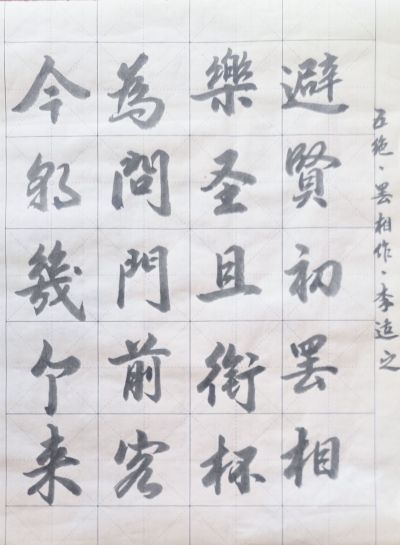 五绝·罢相作·李适之
避賢初罢相
樂圣且銜杯
為問門前客
今朝幾个来